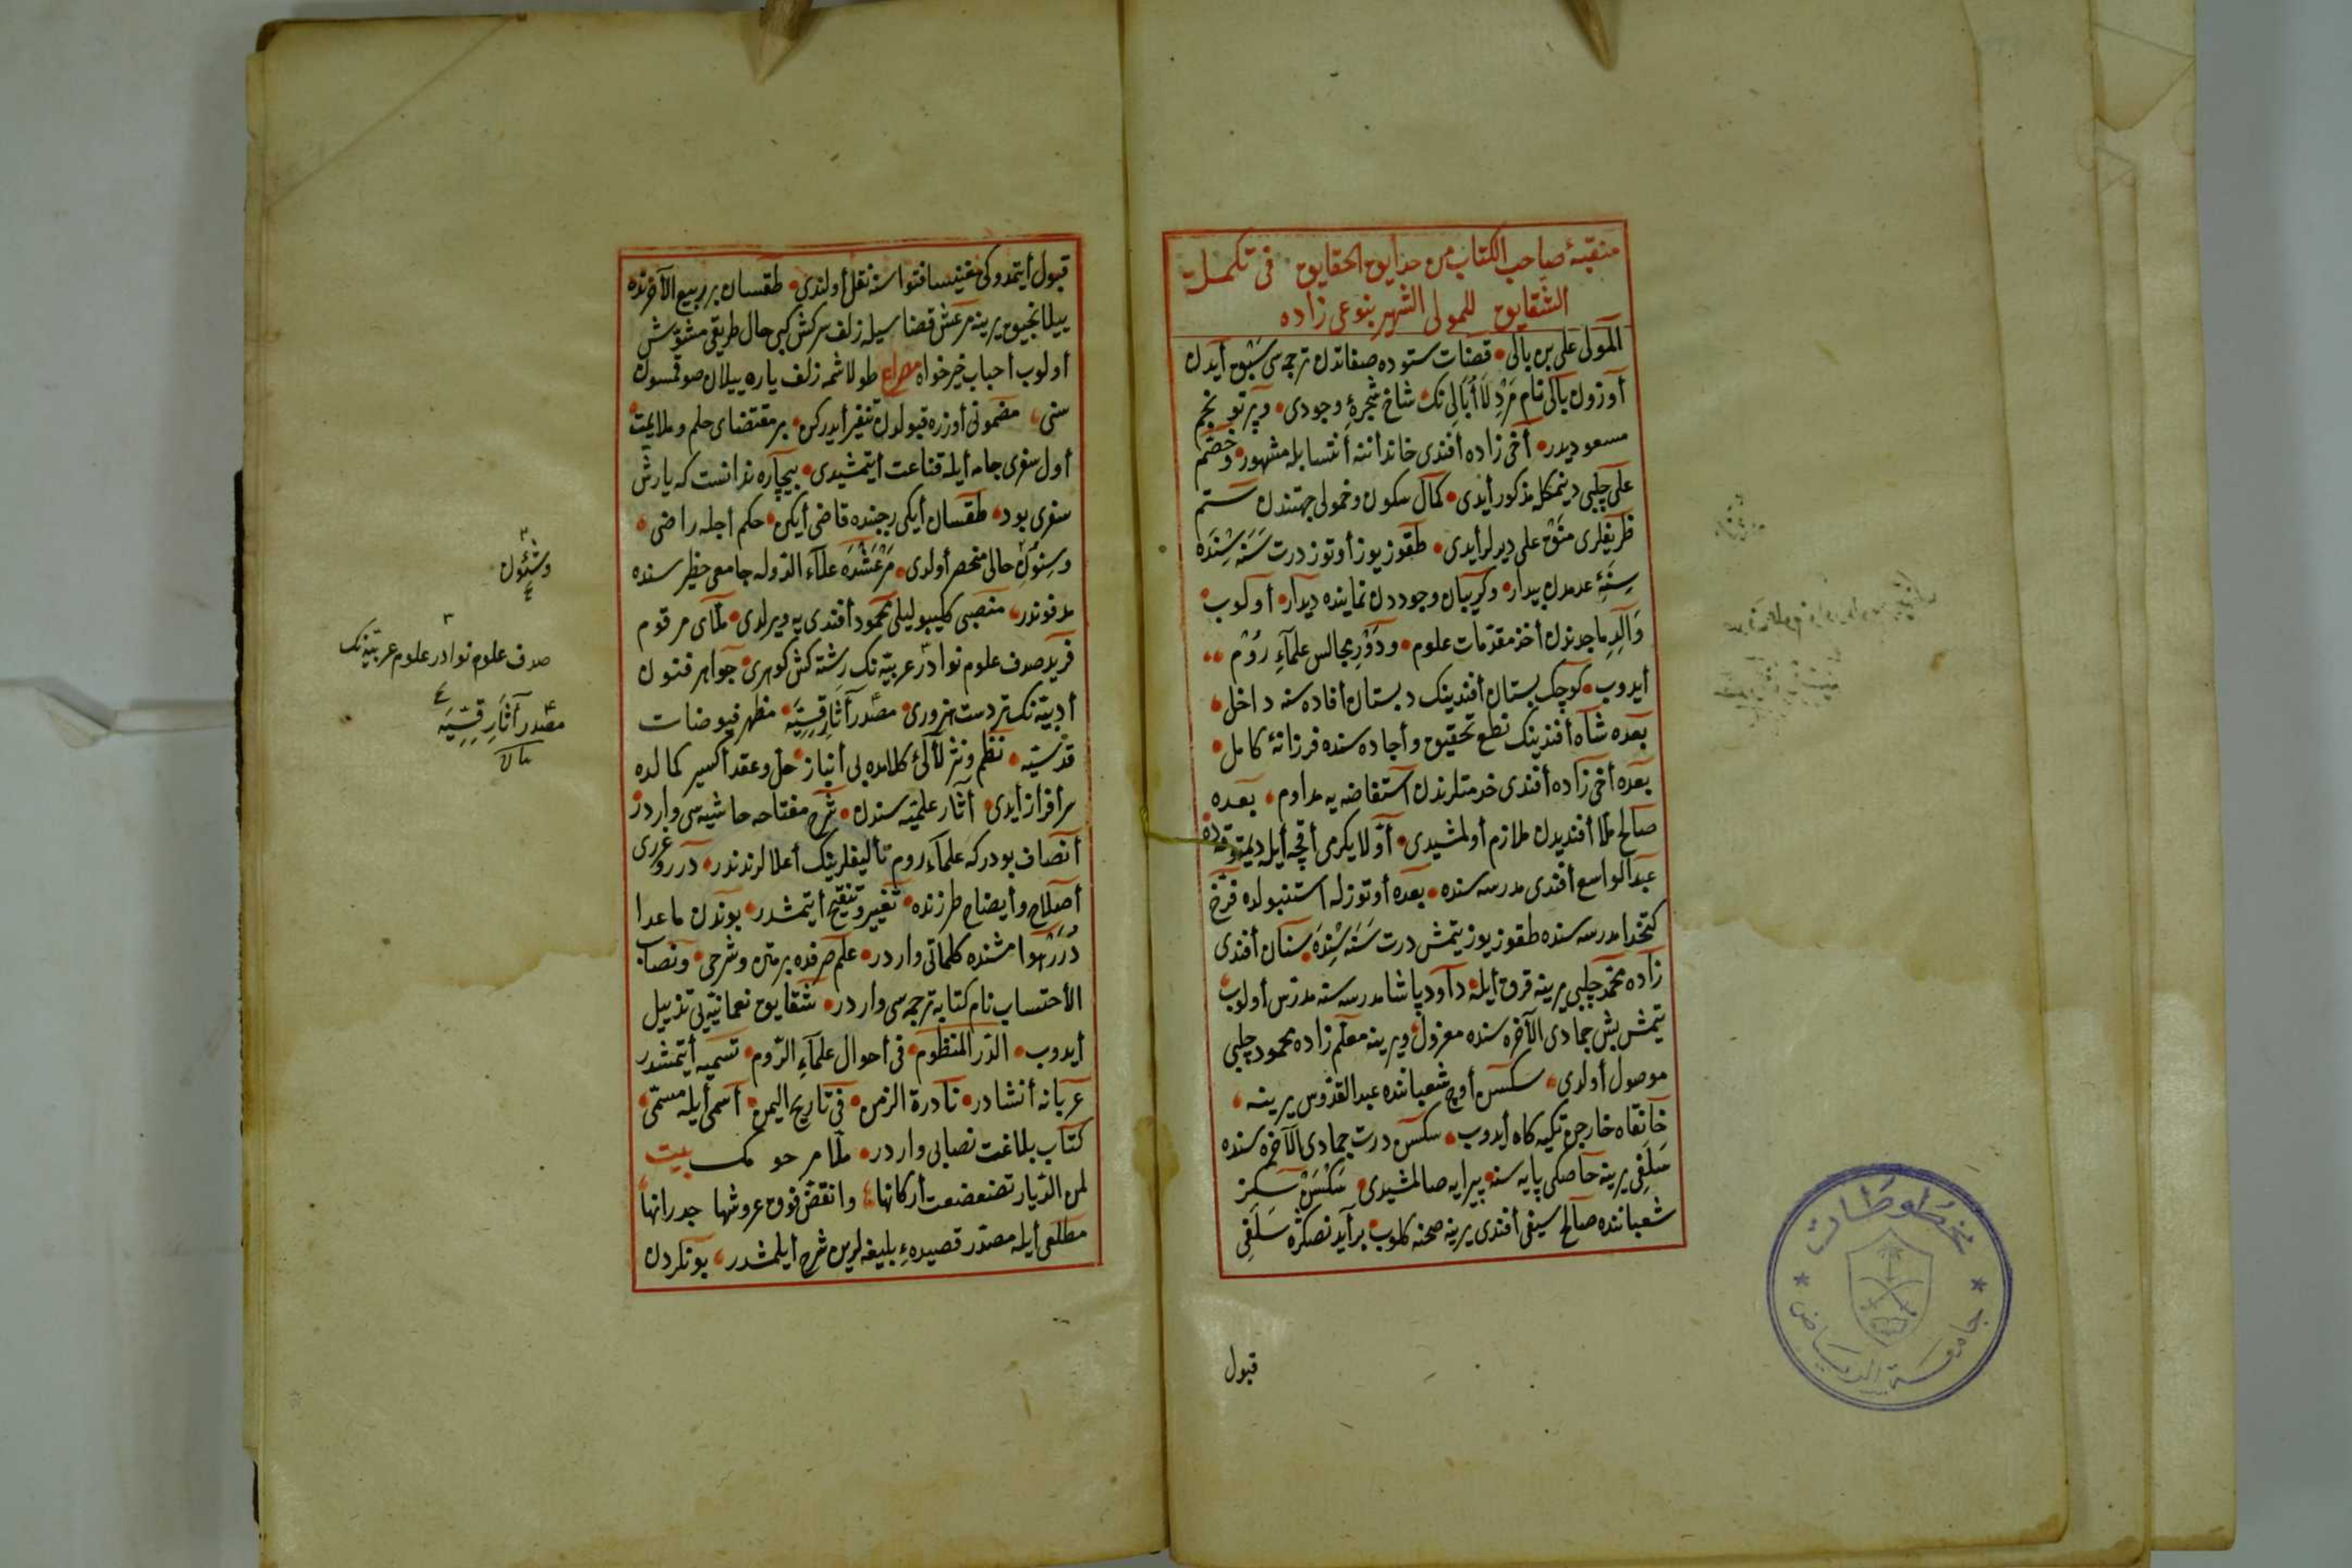 منقبهٔ صاحب الكتاب من حدايق الحقايق فى تكملة
الشقايق للمولى الشهير بنوعى زاده
المولى على بن بالى قضات ستوده صفاتدن ترجمه سى سبق أيدن
أوزون بالى نام مرد لاأبالى نك شاخ شجرهٔ وجودى وپرتو نجم
مسعوديدر أخى زاده أفندى خانداننه أنتسابله مشهور وخصم
على چلبى ديمكله مذكور أيدى كمال سكون وخمولى جهتندن ستم
ظريفلرى منق على ديرلر أيدى طقوز يوز أوتوز درت سنه سنده
سنهٔ عدمدن بيدار وكريبان وجوددن نماينده ديدار أولوب
والد ماجدندن أخذ مقدمات علوم ودور مجالس علماء روم
أيدوب كوچك بستان أفندينك دبستان أفاده سنه داخل
بعده شاه أفندينك نطع تحقيق وأجاده سنده فرزانهٔ كامل
بعده أخى زاده أفندى خدمتلرندن استفاضه يه مداوم بعده
صالح ملا أفنديدن ملازم أولمشيدى أولا يكرمى أقچه أيله ديمتوقه ده
عبد الواسع أفندى مدرسه سنده بعده أوتوزله استنبولده فرخ
كتخدا مدرسه سنده طقوز يوز يتمش درت سنه سنده سنان أفندى
زاده محمد چلبى يرينه قرق أيله داود پاشا مدرسه سنه مدرس أولوب
يتمش بش جمادى الآخره سنده معزول ويرينه معلم زاده محمود چلبى
موصول أولدى سكسن أوچ شعباننده عبد القدوس يرينه
خانقاه خارجى تكيه كاه أيدوب سكسن درت جمادى الآخره سنده
سلفى يرينه حاصكى پايه سنه پيرايه صالمشيدى سكسن سكز
شعباننده صالح سيفى أفندى يرينه صحنه كلوب بر آيدنصكره سلفى
قبول
قبول أيتمدوكى مغنيسا فتواسنه نقل أولندى طقسان بر ربيع الآخرنده
ييلانجيق يرينه مرعش قضاسيله زلف سركش كبى حال طريقى مشوش
أولوب أحباب خيرخواه مصراع طولاشمه زلف ياره ييلان صوقمسون
سنى مضمونى أوزره قبولدن تنفير أيدركن بر مقتضاى حلم وملايمت
أول سفرى جامه أيله قناعت أيتمشيدى بيچاره ندانست كه يارش
سفرى بود طقسان أيكى رجبنده قاضى أيكن حكم أجله راضى
وسنوٴل حالى منحصر أولدى مرعشده علاء الدوله جامعى حظيره سنده
مدفوندر منصبى كليبوليلى محمود أفندى يه ويرلدى ملاى مرقوم
فريد صدف علوم نوادر عربيه نك رشته كش كوهرى جواهر فنون
أدبيه نك تردست هنرورى مصدر آثار قسيه مظهر فيوضات
قدسيه نظم ونثر لآلئ كلامده بى أنباز حل وعقد أكسير كمالده
سرافراز أيدى آثار علميه سندن شرح مفتاحه حاشيه سى واردر
أنصاف بودركه علماء روم تأليفلرينك أعلالرندندر درر وغررى
أصلاح وأيضاح طرزنده تغيير وتنقيح أيتمشدر بوندن ماعدا
درر هوامشنده كلماتى واردر علم صرفده بر متن وشرحى ونصاب
الأحتساب نام كتابه ترجمه سى واردر شقايق نعمانيه يى تذييل
أيدوب الدر المنظوم فى أحوال علماء الروم تسميه أيتمشدر
عربانه أنشادر نادرة الزمن فى تاريخ اليمن أسمى أيله مسمى
كتاب بلاغت نصابى واردر ملا مرحومك بيت
لمن الديار تضعضعت أركانها وانقض فوق عروشها جدرانها
مطلعى أيله مصدر قصيدهء بليغه لرين شرح أيلمشدر بونكردن
وسئول
صدف علوم نوادر علوم عربيه نك
مصدر آثار قسيه
مخطوطات
جامعة الرياض